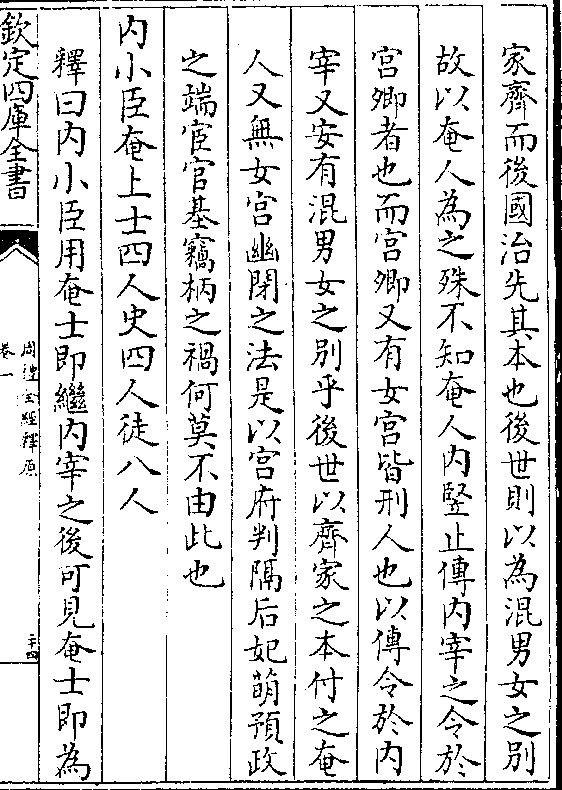 家齊而後國治先其本也後世則以為混男女之别
故以奄人為之殊不知奄人内竪止傳内宰之令於
宫卿者也而宫卿又有女宫皆刑人也以傳令於内
宰又安有混男女之别乎後世以齊家之本付之奄
人又無女宫幽閉之法是以宫府判隔后妃萌預政
之端宦官基竊柄之禍何莫不由此也
内小臣奄上士四人史四人徒八人
釋曰内小臣用奄士即繼内宰之後可見奄士即為
欽定四庫全書
周禮全經釋原
卷一
二十四